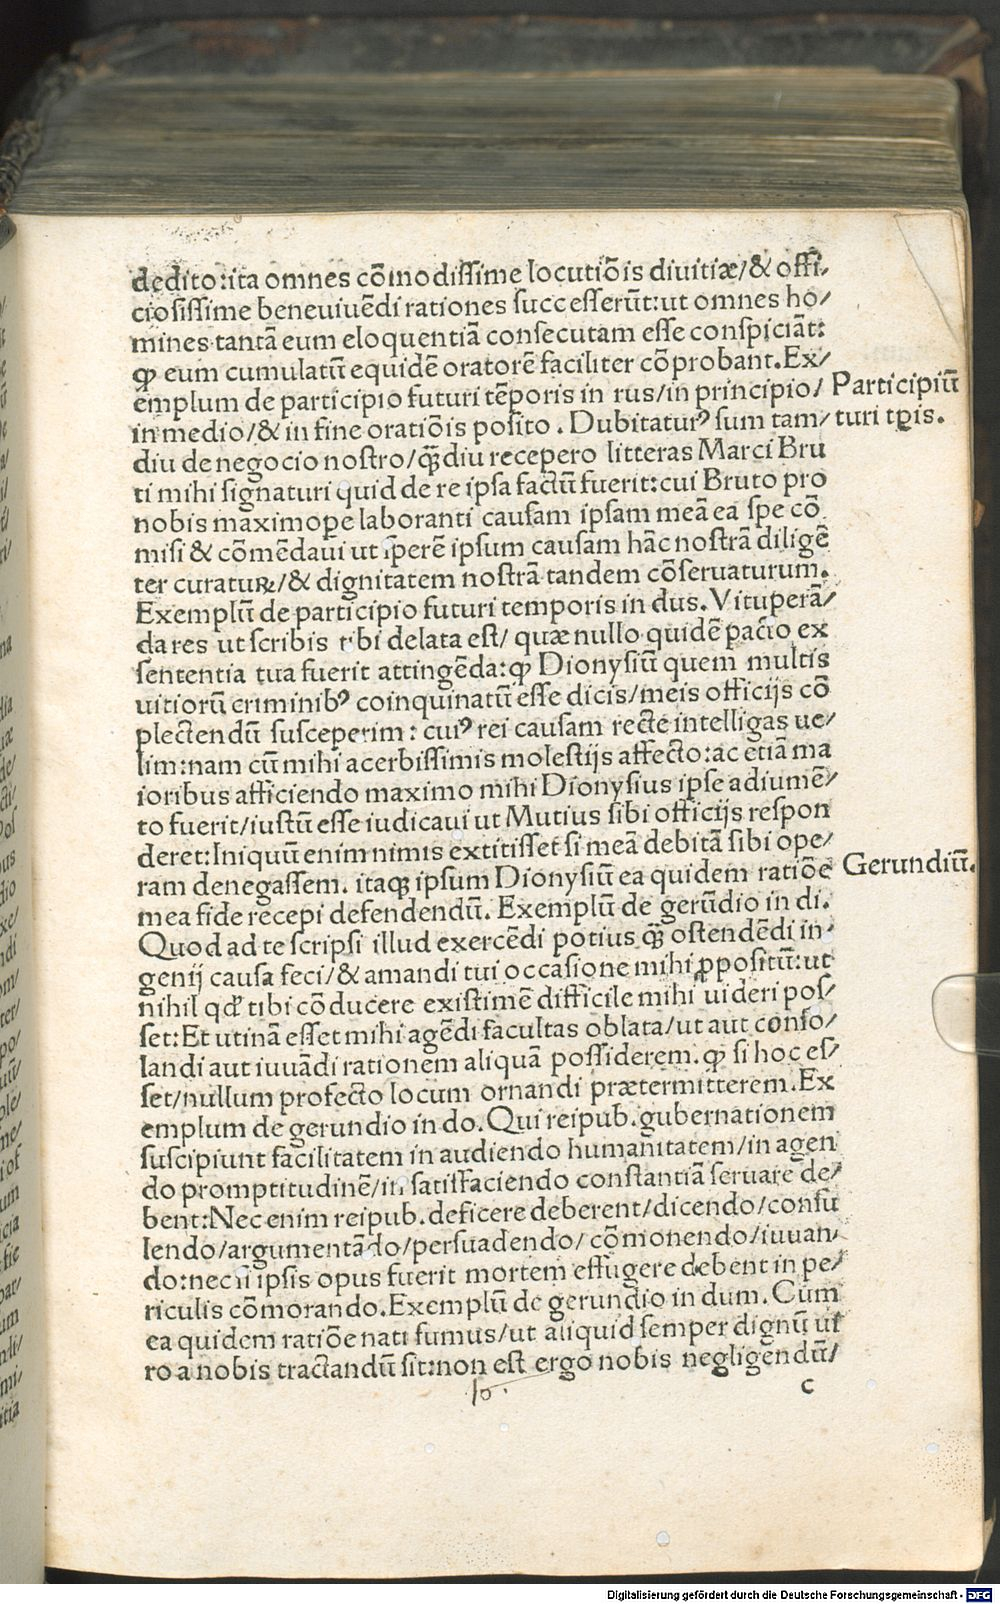 dedito:ita omnes cõmodissime locutiõis diuitiæ/& offi/
ciosissime beneuiuẽdi rationes successerũt:ut omnes ho/
mines tantã eum eloquentiã consecutam esse conspiciãt:
ꝙ eum cumulatũ equidẽ oratorẽ faciliter cõprobant.Ex/
emplum de participio futuri tẽporis in rus/in principio/
Participiũ
in medio/& in fine oratiõis posito. Dubitaturꝰ sum tam/
turi tꝑis.
diu de negocio nostro/ꝗ̃diu recepero litteras Marci Bru
ti mihi signaturi quid de re ipsa factũ fuerit:cui Bruto pro
nobis maximoꝑe laboranti causam ipsam meã ea spe cõ
misi & cõmẽdaui ut iꝑerẽ ipsum causam hãc nostrã diligẽ
ter curaturꝝ/& dignitatem nostrã tandem cõseruaturum.
Exemplũ de participio futuri temporis in dus. Vituperã/
da res ut scribis tibi delata est/ quæ nullo quidẽ pacto ex
sententia tua fuerit attingẽda:ꝙ Dionysiũ quem multis
uitiorũ criminibꝰ coinquinatũ esse dicis/meis officijs cõ
plectendũ susceperim: cuiꝰ rei causam recte intelligas ue/
lim:nam cũ mihi acerbissimis molestijs affecto:ac etiã ma
ioribus afficiendo maximo mihi Dionysius ipse adiumẽ/
to fuerit/iustũ esse iudicaui ut Mutius sibi officijs respon
deret:Iniquũ enim nimis extitisset si meã debitã sibi ope/
ram denegassem. itaqꝫ ipsum Dionysiũ ea quidem ratiõe
Gerundiũ.
mea fide recepi defendendũ. Exemplũ de gerũdio in di.
Quod ad te scripsi illud exercẽdi potius ꝗ̃ ostendẽdi in/
genij causa feci/& amandi tui occasione mihi ꝓpositũ:ut
nihil qđ tibi cõducere existimẽ difficile mihi uideri pos/
set:Et utinã esset mihi agẽdi facultas oblata/ut aut conso/
landi aut iuuãdi rationem aliquã possiderem.ꝙ si hoc es/
set/nullum profecto locum ornandi prætermitterem.Ex
emplum de gerundio in do. Qui reipub.gubernationem
suscipiunt facilitatem in audiendo humanitatem/in agen
do promptitudinẽ/in satisfaciendo constantiã seruare de/
bent:Nec enim reipub.deficere deberent/dicendo/consu
lendo/argumentãdo/persuadendo/ cõmonendo/iuuan/
do:nec si ipsis opus fuerit mortem effugere debent in pe/
riculis cõmorando.Exemplũ de gerundio in dum. Cum
ea quidem ratiõe nati sumus/ut aliquid semper dignũ ui
ro a nobis tractandũ sit:non est ergo nobis negligendũ/
10.
c
Digitalisierung gefördert durch die Deutsche Forschungsgemeinschaft - DFG